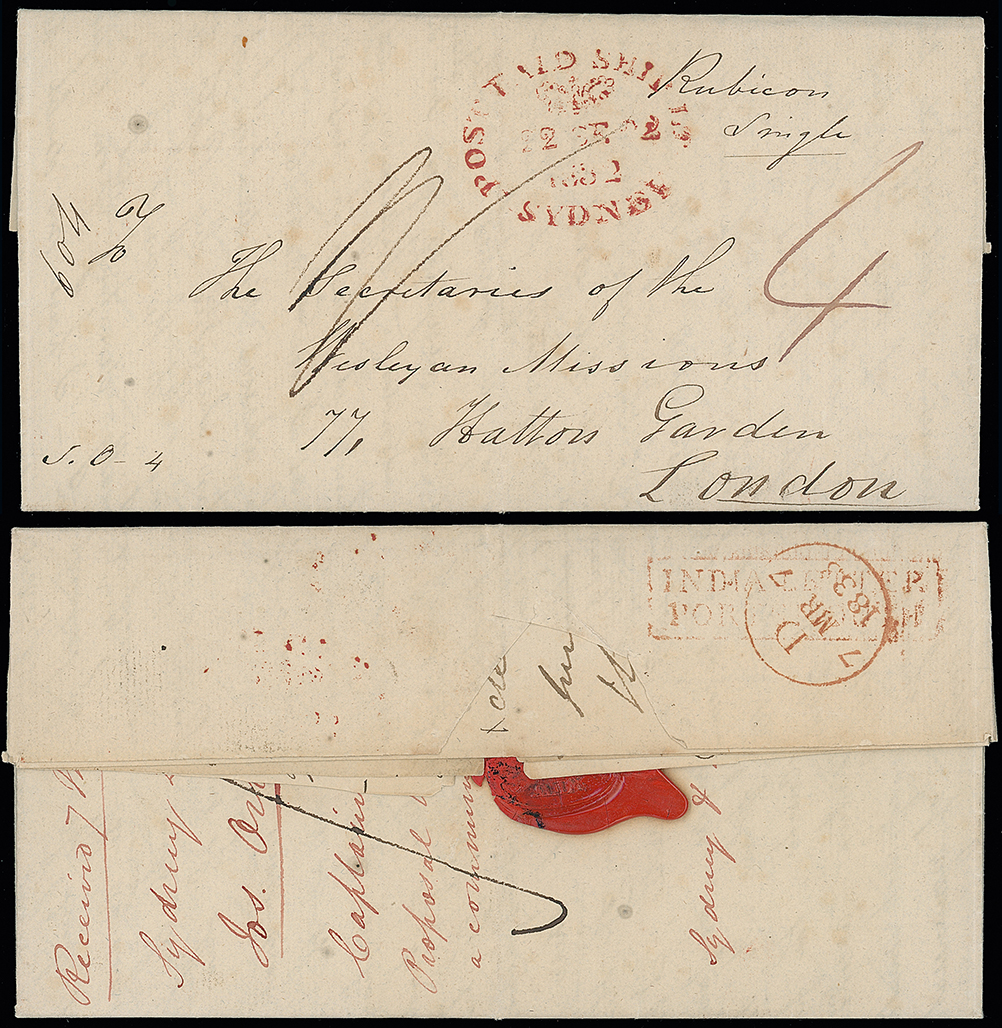 POST PAID SHIP
22 SE 2
1832
SYDNEY
Rubicon
Single
4
604
The Secretaries of the
Wesleyan Missions
77, Hatton Garden
London
S. O - 4
INDIA LETTER
PORTSMOUTH
D
7 MR 7
1833
Received 7
Sydney
Jos. Or
Captain
Proposal
a commun
Sydney &